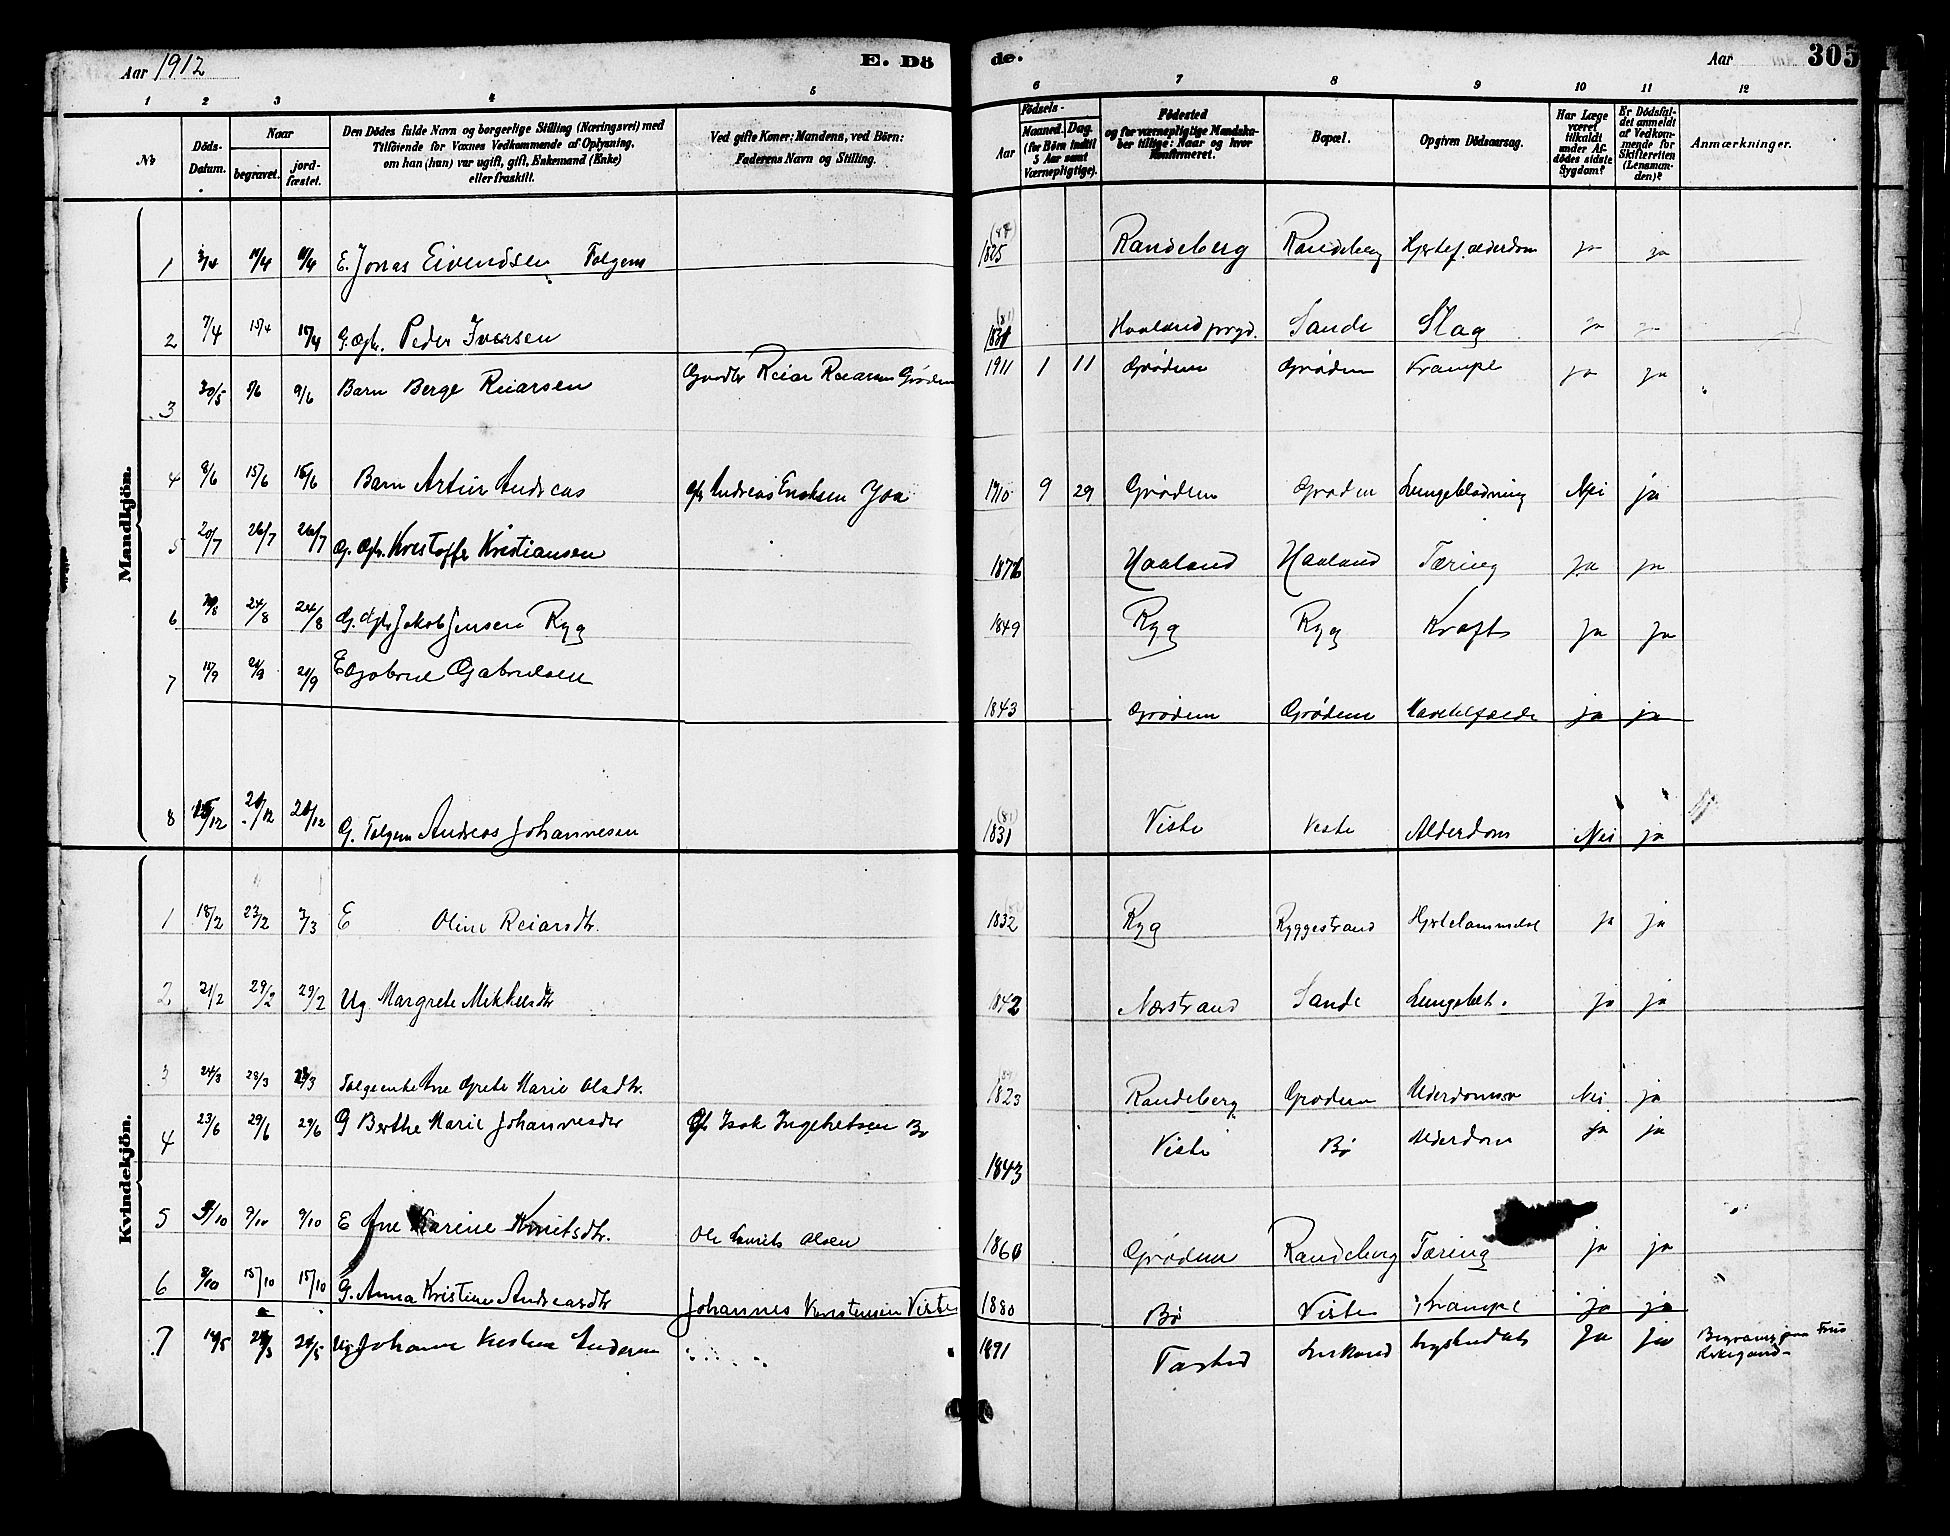 Aar 1912
E. Dö
de.
Aar
305
1 2 3 4 5 6 7 8 9 10 11 12
No
Döds-Datum.
Naar
begravet.
jord-fæstet.
Den Dödes fulde Navn og borgerlige Stilling (Næringsvei) med
Tilföiende for Voxnes Vedkommende af Oplysning,
om han (hun) var ugift, gift, Enkemand (Enke)
eller fraskilt.
Ved gifte Koner: Mandens, ved Börn:
Faderens Navn og Stilling.
Födsels-
Aar
Maaned. Dag.
(for Börn indtil
5 Aar samt
Værnepligtige).
Födested
og for værnepligtige Mandska-
ber tillige: Naar og hvor
konfirmeret.
Bopæl.
Opgiven Dödsaarsag.
Har Læge
været
tilkaldt
under Af-
dödes sidste
Sygdom?
Er Dödsfal-
det anmeldt
af Vedkom-
mende for
Skifteretten
(Lensman-
den)?
Anmærkninger.
Mandkjön.
1 3/4 11/4 11/4 E. Jonas Eivendsen Folgem 1825 (87) Randeberg Randeberg Hjertef. alderdom ja ja
2 7/4 15/4 15/4 G. Gbr. Peder Iversen 1831 (81) Haaland prgd. Sande Slag ja ja
3 30/5 9/6 9/6 Barn Berge Reiarsen Gaardbr Reiar Reiarsen Grødem 1911 1 11 Grødem Grødem Krampe ja ja
4 8/6 15/6 15/6 Barn Artur Andreas Andreas 1910 9 29 Grødem Grødem Lungeblødning Nei ja
5 20/7 26/7 26/7 G. Gbr. Kristoffer Kristiansen 1876 Haaland Haaland Tæring ja ja
6 24/8 24/8 G. Gbr Jakob Jensen Ryg 1849 Ryg Ryg Kræft ja ja
7 15/9 21/9 E Gabriel Gabrielsen 1843 Grødem Grødem ja ja
8 15/12 21/12 21/12 G. Folgem Andreas Johannesen 1831 (81) Viste Viste Alderdom Nei ja
Kvindekjön.
1 18/2 23/2 3/3 E Oline Reiarsdtr. 1832 Ryg Ryggestrand Hjertelammelse ja ja
2 21/2 29/2 29/2 Ug. Margrete Mikkelsdtr 1842 Nærstrand Sande Lungebet. ja ja
3 24/3 28/3 28/3 Folgeenke Ane Grete Marie Olsdtr. 1823 Randeberg Grødem Alderdom Nei ja
4 23/6 29/6 29/6 G Berthe Marie Johannesdtr Gbr Isak Ingebretsen Bø 1843 Viste Bø Alderdom ja ja
5 5/10 9/10 9/10 E Ane Karine Knutsdtr. Ole Laurits Olsen 1860 Grødem Randeberg Tæring ja ja
6 8/10 15/10 15/10 G. Anna Kristine Andreasdtr Johannes Viste 1880 Bø Viste Krampe ja ja
7 14/5 20/5 Ug Johanne 1891 Tasted ja ja